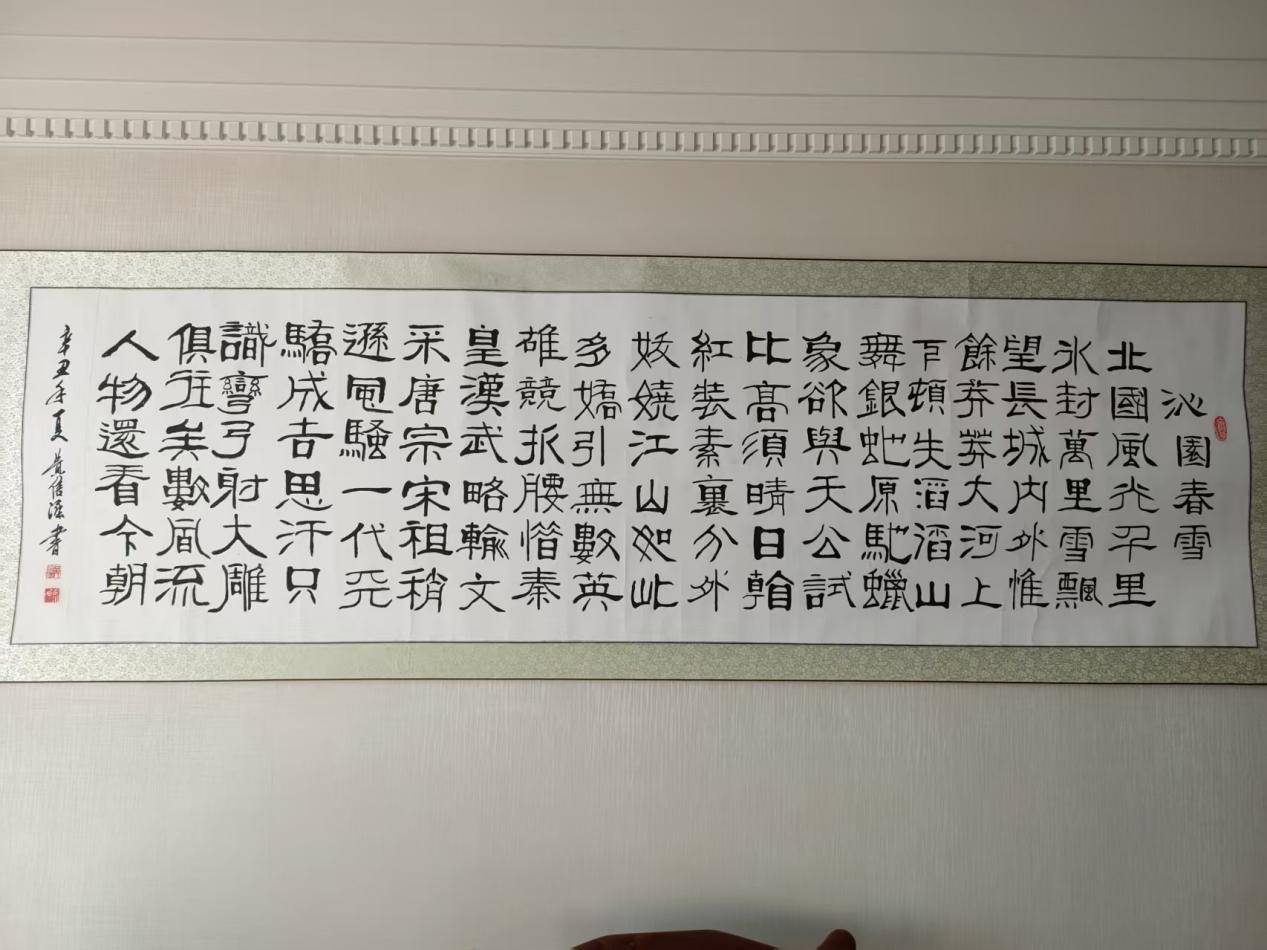 沁園春雪
北國風光千里
冰封萬里雪飄
望長城内外惟
餘莽莽大河上
下頓失滔滔山
舞銀虵原馳蠟
象欲與天公試
比高須晴日
紅裝素裏分外
妖嬈江山如此
多嬌引無數英
雄競折腰惜秦
皇漢武略輸文
采唐宗宋祖稍
遜風騷一代天
驕成吉思汗只
識彎弓射大雕
俱往矣數風流
人物還看今朝
辛丑年夏 書